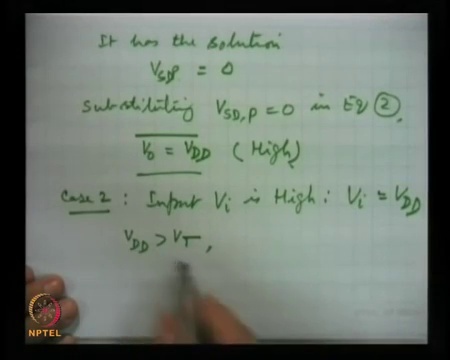 It has the solution
V_SDP = 0
Substituting V_SD,P = 0 in Eq (2),
V_0 = V_DD (High)
Case 2 : Input V_i is High : V_i = V_DD
V_DD > V_T,
NPTEL